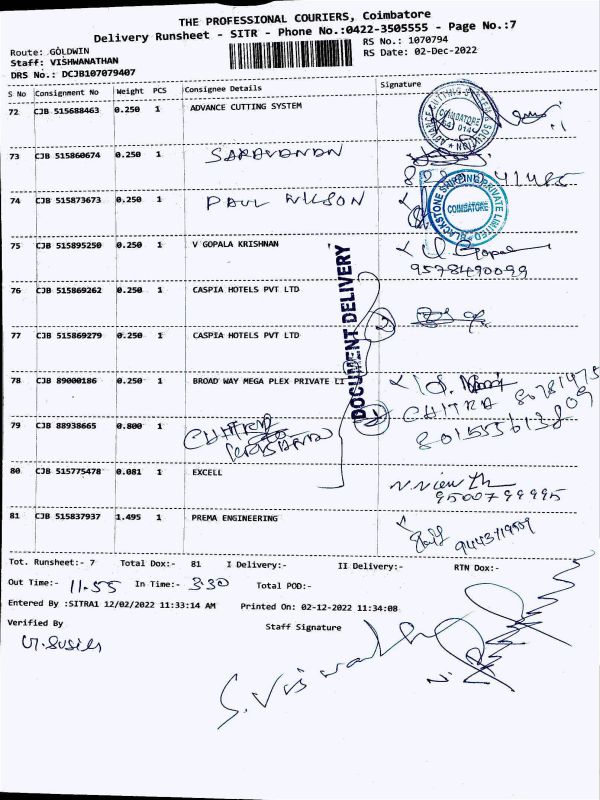 THE PROFESSIONAL COURIERS, Coimbatore
Delivery Runsheet - SITR - Phone No.:0422-3505555 - Page No.:7
Route: GOLDWIN
RS No.: 1070794
Staff: VISHWANATHAN
RS Date: 02-Dec-2022
DRS No.: DCJB107079407
S No Consignment No Weight PCS Consignee Details Signature
72 CJB 515688463 0.250 1 ADVANCE CUTTING SYSTEM
COIMBATORE
73 CJB 515860674 0.250 1 SARAVANAN
74 CJB 515873673 0.250 1 PAUL WILSON
BLACKSTONE SHIPPING PRIVATE LIMITED
COIMBATORE
75 CJB 515895250 0.250 1 V GOPALA KRISHNAN V.Gopal
9578490099
DOCUMENT DELIVERY
76 CJB 515869262 0.250 1 CASPIA HOTELS PVT LTD
2
77 CJB 515869279 0.250 1 CASPIA HOTELS PVT LTD
78 CJB 89000186 0.250 1 BROAD WAY MEGA PLEX PRIVATE LI
CHITRA
79 CJB 88938665 0.800 1 CHITRA
80 CJB 515775478 0.081 1 EXCELL
9500799995
81 CJB 515837937 1.495 1 PREMA ENGINEERING
9443719559
Tot. Runsheet:- 7 Total Dox:- 81 I Delivery:- II Delivery:- RTN Dox:-
Out Time:- 11.55 In Time:- 3.30 Total POD:-
Entered By :SITRA1 12/02/2022 11:33:14 AM Printed On: 02-12-2022 11:34:08
Verified By
Staff Signature